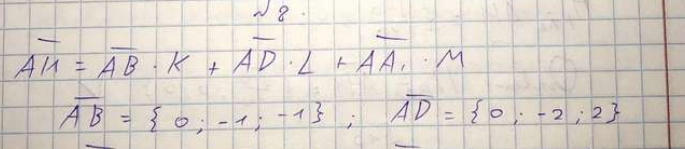 № 8.
AH = AB · K + AD · L + AA₁ · M
AB = { 0 ; -1 ; -1 } ; AD = { 0 ; -2 ; 2 }